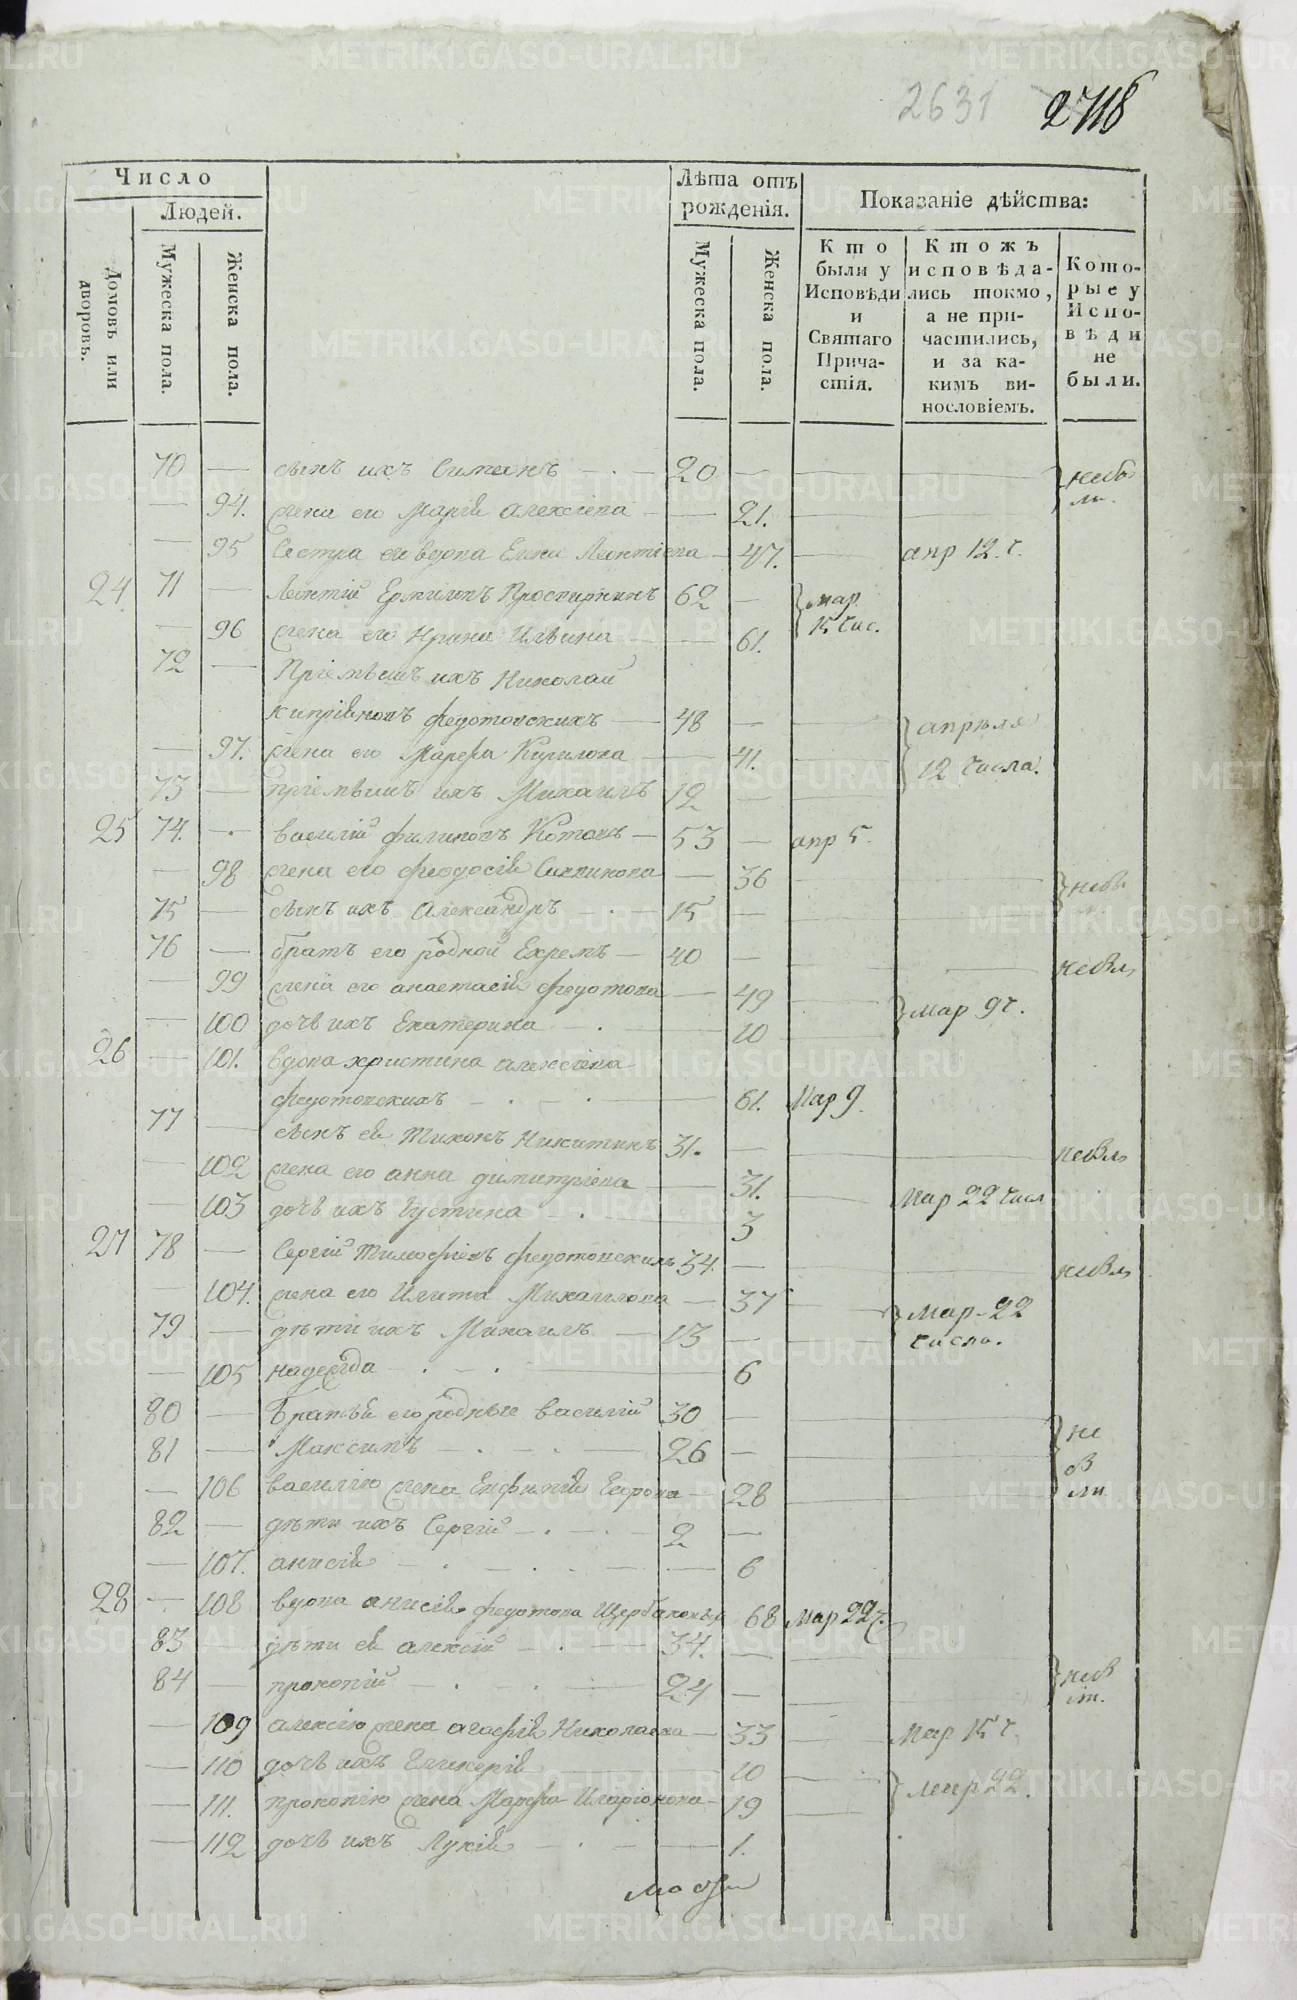 2631 2718
Число
Людей.
Домовъ или дворовъ.
Мужеска пола.
Женска пола.
Лѣта отъ рожденія.
Мужеска пола.
Женска пола.
Показаніе дѣйства:
Кто были у Исповѣди и Святаго Причастія.
Ктожъ исповѣдались токмо, а не причастились, и за какимъ винословіемъ.
Которые у Исповѣди не были.
70 — сынъ ихъ Симеонъ — 20 — небы
— 94. жена его Марія Алексіева — 21. ли.
— 95 Сестра ей вдова Елена Леонтіева — 47. — апр 12. ч.
24 71 — Леонтій Ермиловъ Просвирнинъ 62 — мар
— 96 жена его Ирина Ильина — 61. 15 чис.
72 — Пріемышъ ихъ Николай
Кипріяновъ Федотовскихъ — 48 — апрѣля
— 97. жена его Марфа Кирилова — 41. 12 числа.
73 — пріемышъ ихъ Михаилъ 12 —
25 74. — василій филиповъ Котовъ — 53 — апр 5.
— 98 жена его феодосія — 36 небы
75 — сынъ ихъ Александръ — 15 —
76 — братъ его родной Ефремъ — 40 — небыл
— 99 жена его анастасія федотова — 49 мар 9 ч.
— 100 дочь ихъ Екатерина — 10
26 — 101. вдова христина алексіева
федотовскихъ — 61. Мар 9.
77 — сынъ ея Тихонъ Никитинъ 31. — небыл
— 102 жена его анна димитріева — 31. Мар 22 числ
— 103 дочь ихъ Густина — 3
27 78 — Сергій Тимофіевъ федотовскихъ 34. — небыл
— 104. жена его Улита Михаилова — 37 — мар 22
79 — дѣти ихъ Михаилъ — 13 — числа.
— 105 надежда — 6
80 — Братья его родные василій 30 — не
81 — Максимъ — 26 — бы
— 106 василію жена Евфимія Егорова — 28 ли
82 — дѣти ихъ Сергій — 2 —
— 107. анисія — 6
28 — 108 вдова анисія федотова Щербаковыхъ 68 Мар 22 ч.
83 — дѣти ея алексій — 34. —
84 — прокопій — 24 — небы
ли.
— 109 алексію жена агафія Николаева — 33 — Мар 15 ч.
— 110 дочь ихъ Гликерія — 10 мар 22.
— 111. прокопію жена Марфа Иларіонова — 19
— 112 дочь ихъ Лукія — 1.
METRIKI.GASO-URAL.RU